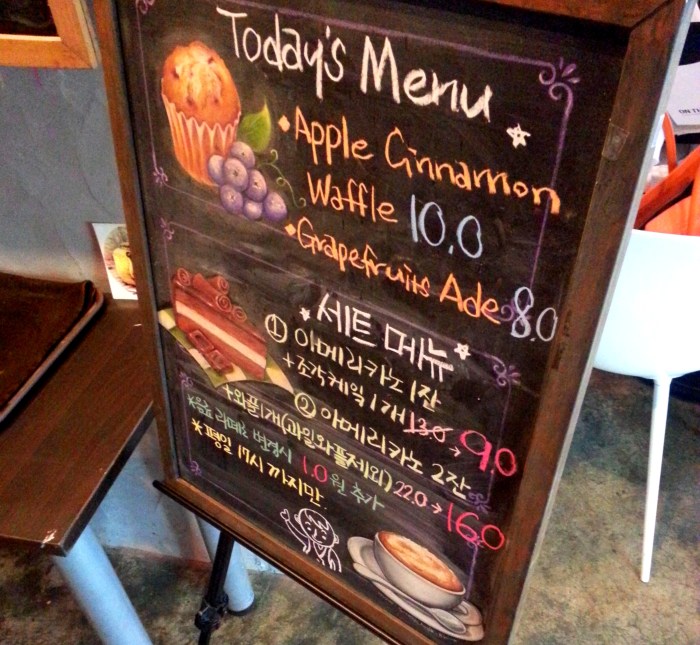 Today's Menu
Apple Cinnamon
Waffle 10.0
Grapefruits Ade 8.0
세트 메뉴
① 아메리카노 1잔
+조각케익 1개 13.0→9.0
② 아메리카노 2잔
+와플1개(과일와플제외) 22.0→16.0
*음료 라떼로 변경시 1.0원 추가
*평일 17시 까지만.